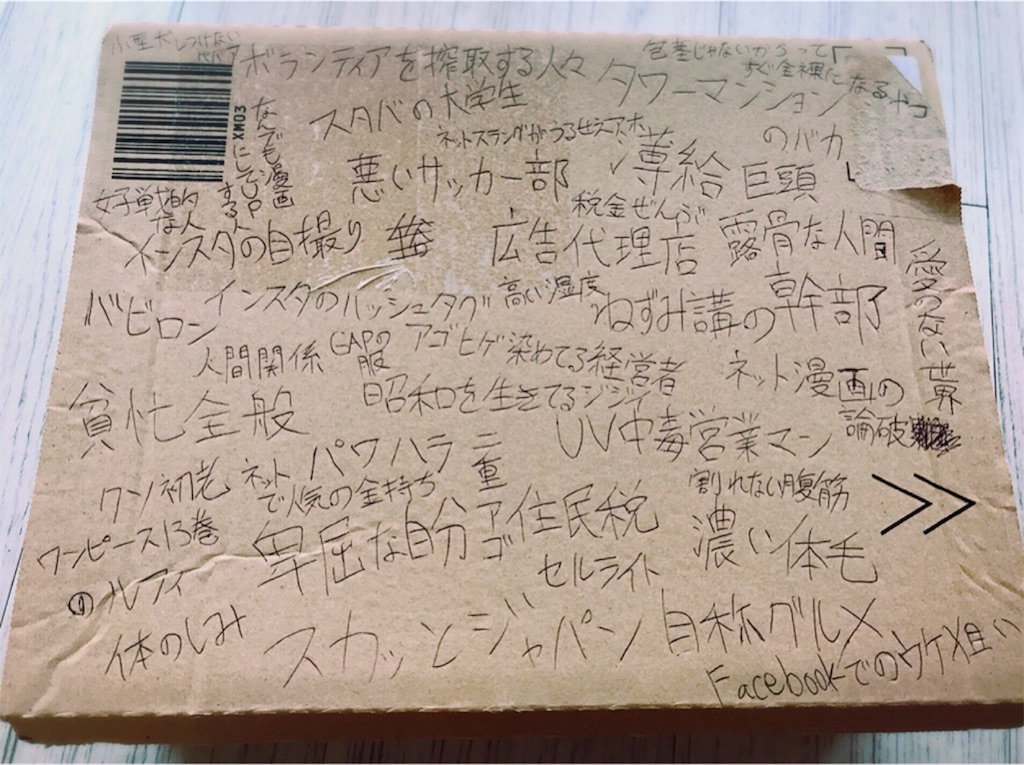 小型犬しつけない
ボランティアを搾取する人々
包茎じゃないからって
すぐ全裸になるやつ
タワーマンション
のバカ
スタバの大学生
ネットスラングがうるせえアホ
なんでも漫画
にしてUPする人
XM03
悪いサッカー部
薄給
巨頭
女子戦略的な人
税金ぜんぶ
インスタの自撮り
広告代理店
露骨な人間
愛のない世界
バビロン
インスタのハッシュタグ
高い湿度
ねずみ講の幹部
人間関係
GAPの服
アゴヒゲ染めてる経営者
貧忙全般
昭和を生きてるジジイ
ネット漫画の論破
UV中毒営業マン
クソ初老
ネットで人気の金持ち
パワハラ
二重アゴ
割れない腹筋
ワンピース13巻のルフィ
卑屈な自分
住民税
濃い体毛
セルライト
体のしみ
スカッとジャパン
自称グルメ
Facebookでのウケ狙い